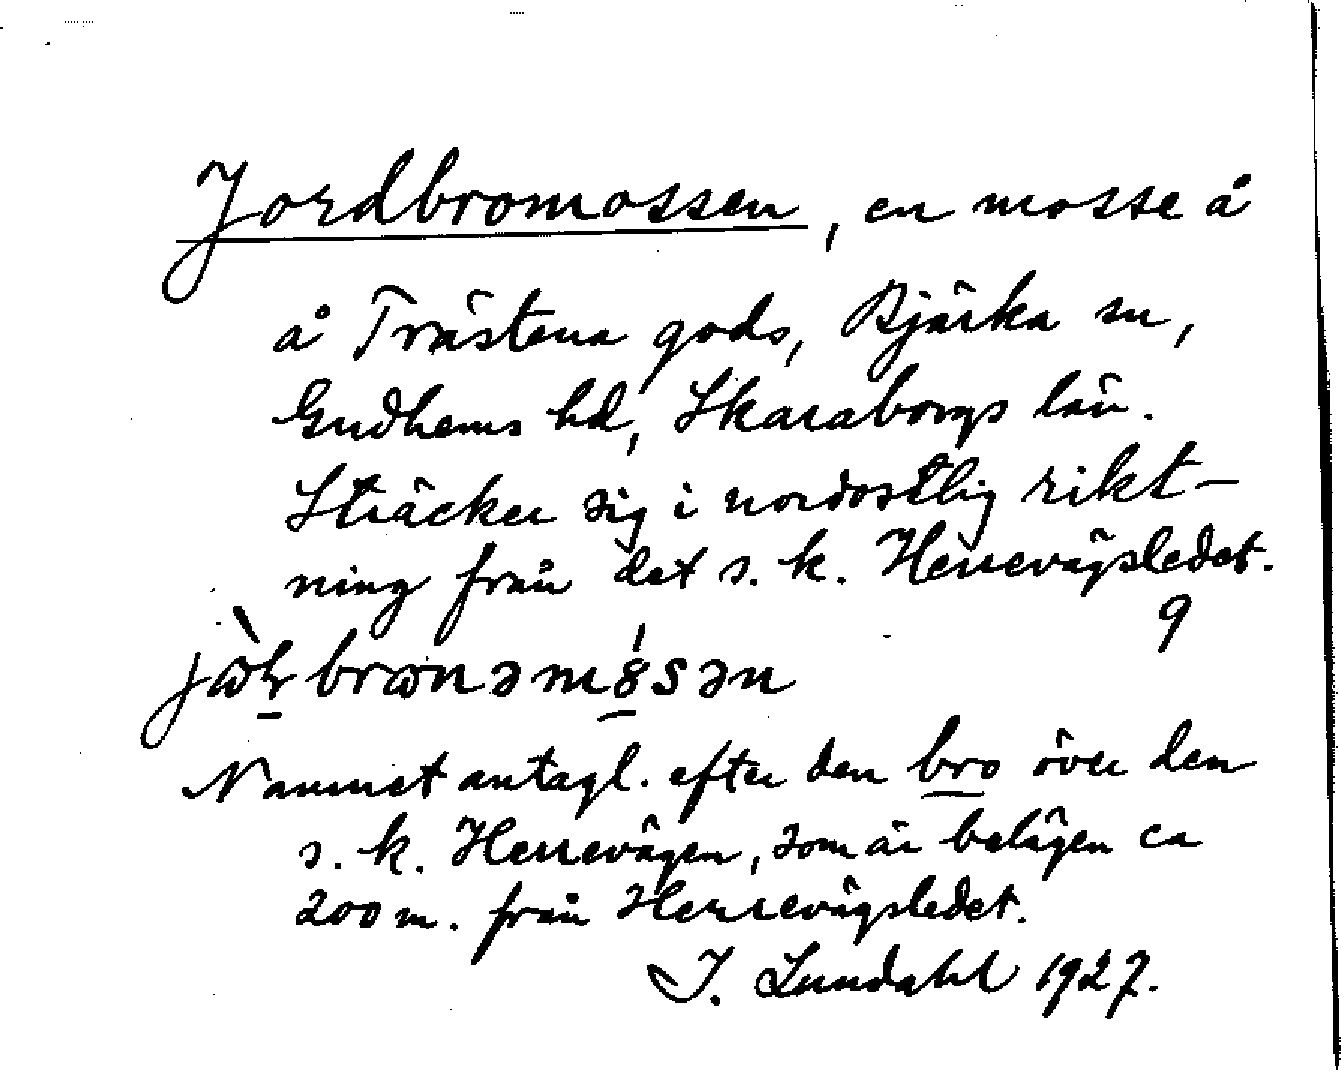 Jordbromossen, en mosse å
å Trästena gods, Bjärka sn,
Gudhems hd, Skaraborgs län.
Sträcker sig i nordostlig rikt-
ning från det s. k. Herrevägsledet.
9
Namnet antagl. efter den bro över den
s. k. Herrevägen, som är belägen ca
200 m. från Herrevägsledet.
I. Lundahl 1927.